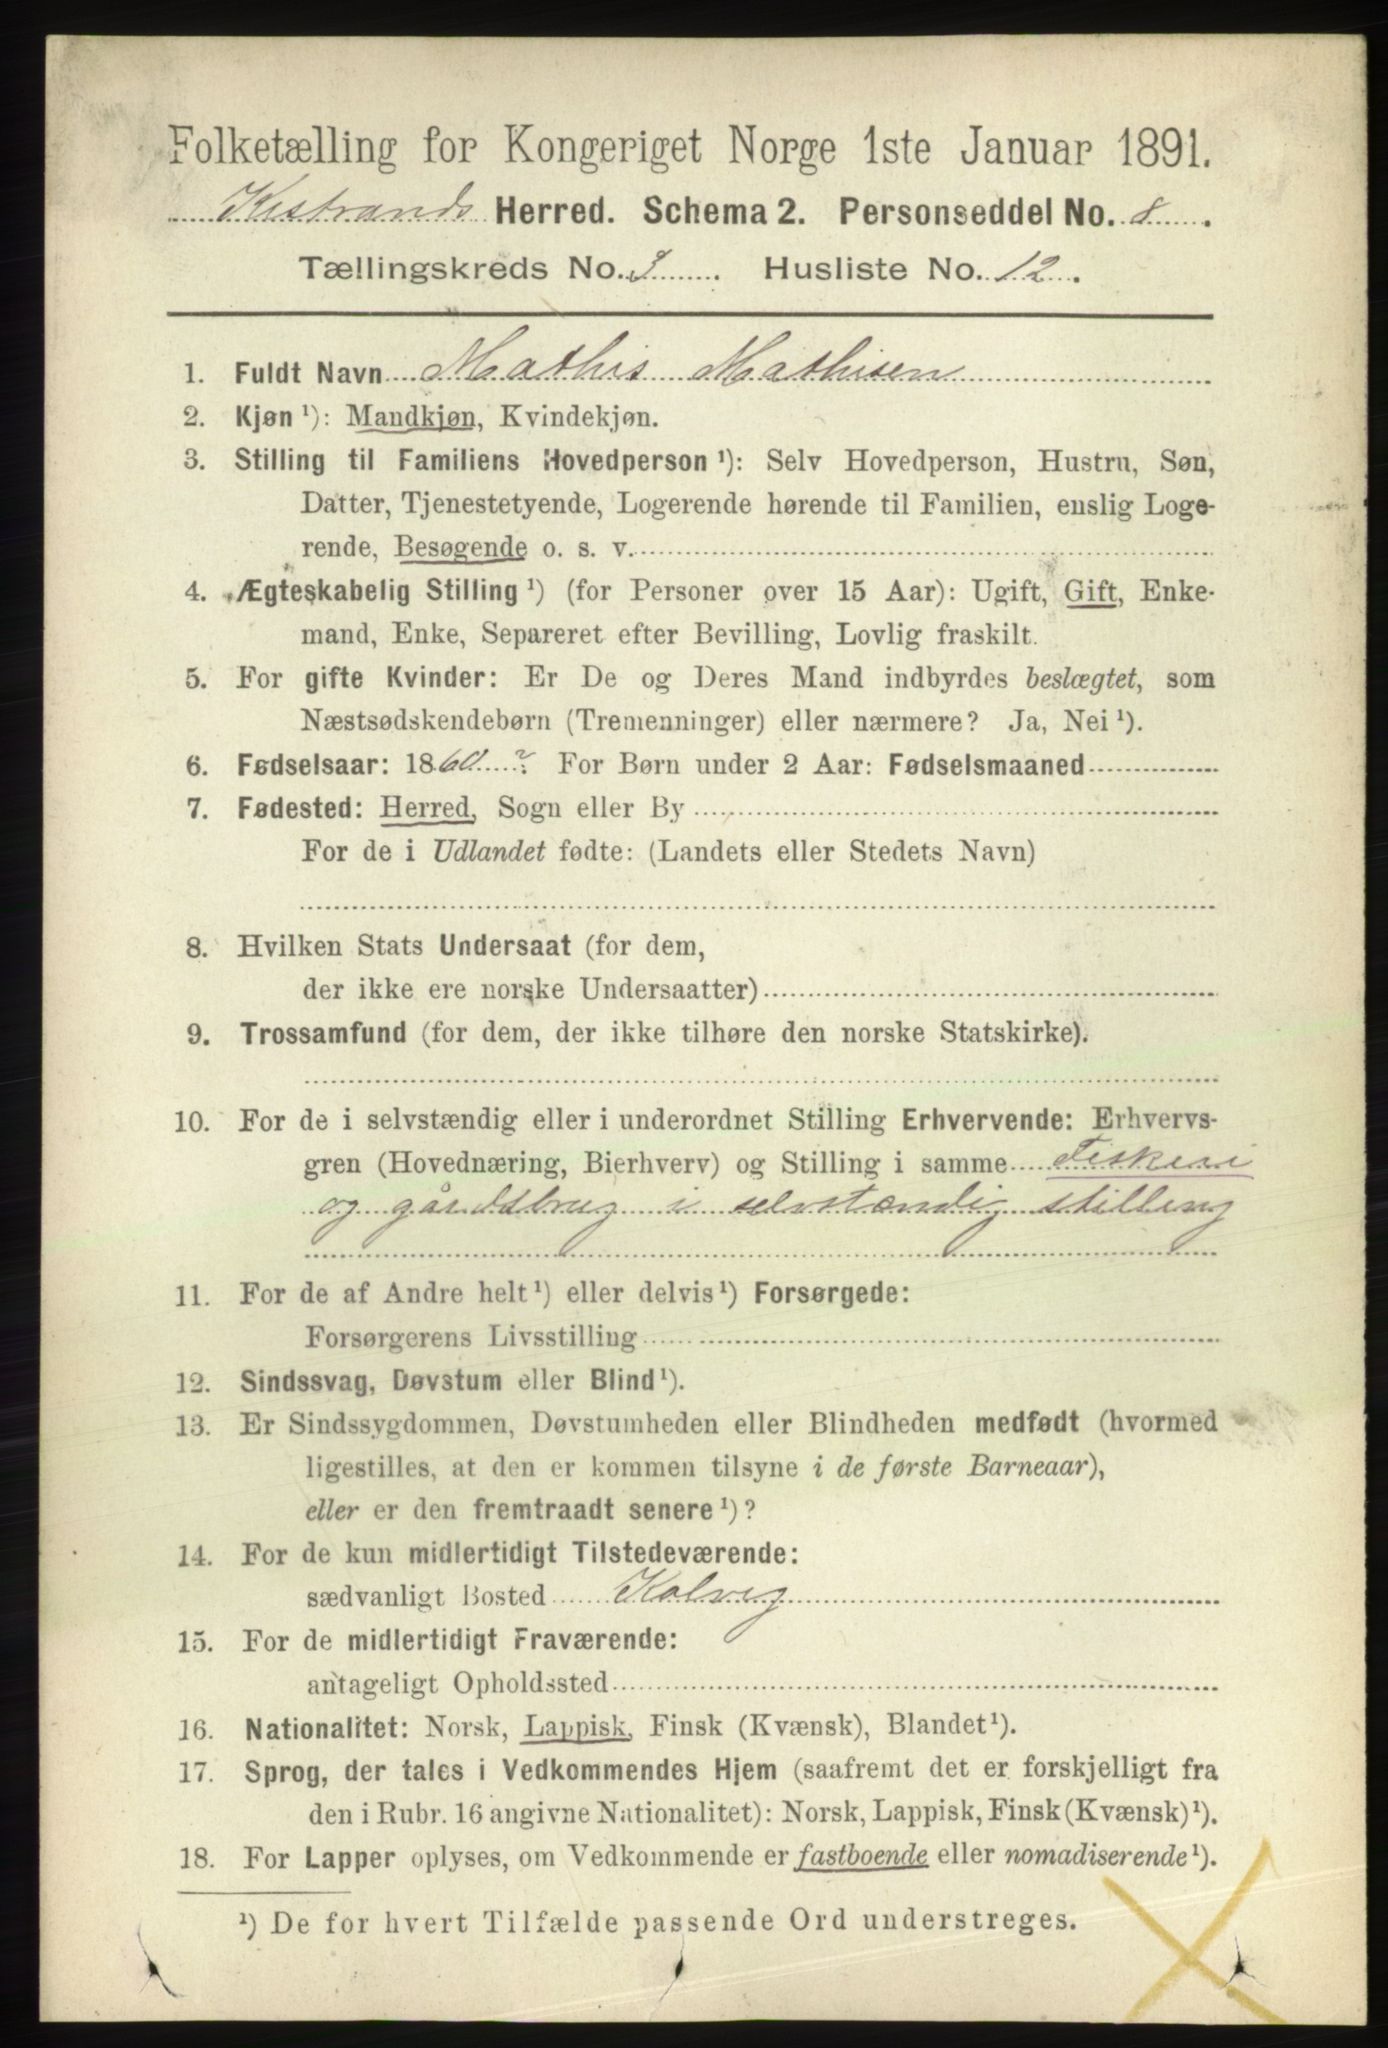 Folketælling for Kongeriget Norge 1ste Januar 1891.
Kistrands Herred. Schema 2. Personseddel No. 8.
Tællingskreds No. 3. Husliste No. 12.
1. Fuldt Navn Mathis Mathisen
2. Kjøn ¹): Mandkjøn, Kvindekjøn.
3. Stilling til Familiens Hovedperson ¹): Selv Hovedperson, Hustru, Søn,
Datter, Tjenestetyende, Logerende hørende til Familien, enslig Loge-
rende, Besøgende o. s. v.
4. Ægteskabelig Stilling ¹) (for Personer over 15 Aar): Ugift, Gift, Enke-
mand, Enke, Separeret efter Bevilling, Lovlig fraskilt.
5. For gifte Kvinder: Er De og Deres Mand indbyrdes beslægtet, som
Næstsødskendebørn (Tremenninger) eller nærmere? Ja, Nei ¹).
6. Fødselsaar: 1860 ? For Børn under 2 Aar: Fødselsmaaned
7. Fødested: Herred, Sogn eller By
For de i Udlandet fødte: (Landets eller Stedets Navn)
8. Hvilken Stats Undersaat (for dem,
der ikke ere norske Undersaatter)
9. Trossamfund (for dem, der ikke tilhøre den norske Statskirke).
10. For de i selvstændig eller i underordnet Stilling Erhvervende: Erhvervs-
gren (Hovednæring, Bierhverv) og Stilling i samme Fiskeri
og gårdsbrug i selvstændig stilling
11. For de af Andre helt ¹) eller delvis ¹) Forsørgede:
Forsørgerens Livsstilling
12. Sindssvag, Døvstum eller Blind ¹).
13. Er Sindssygdommen, Døvstumheden eller Blindheden medfødt (hvormed
ligestilles, at den er kommen tilsyne i de første Barneaar),
eller er den fremtraadt senere ¹)?
14. For de kun midlertidigt Tilstedeværende:
sædvanligt Bosted Kolvig
15. For de midlertidigt Fraværende:
antageligt Opholdssted
16. Nationalitet: Norsk, Lappisk, Finsk (Kvænsk), Blandet ¹).
17. Sprog, der tales i Vedkommendes Hjem (saafremt det er forskjelligt fra
den i Rubr. 16 angivne Nationalitet): Norsk, Lappisk, Finsk (Kvænsk) ¹).
18. For Lapper oplyses, om Vedkommende er fastboende eller nomadiserende ¹).
¹) De for hvert Tilfælde passende Ord understreges.